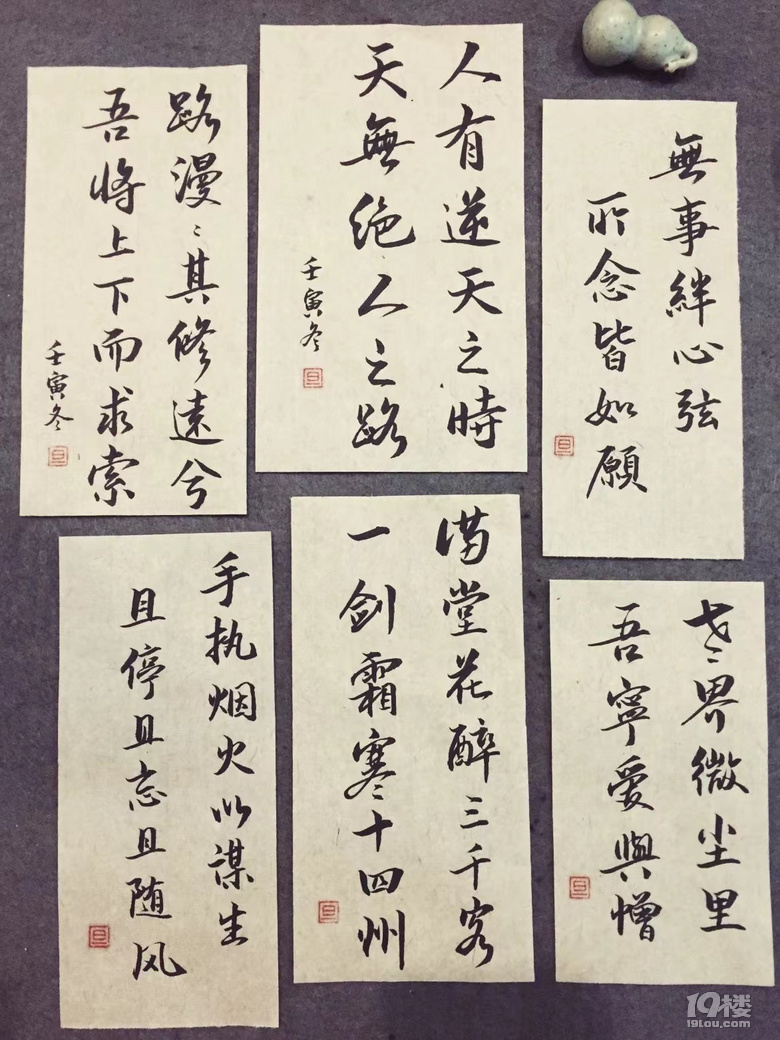 路漫〻其修遠兮
吾将上下而求索
壬寅冬
旦
人有逆天之時
天無绝人之路
壬寅冬
旦
無事絆心弦
所念皆如願
旦
手执烟火以謀生
且停且忘且随风
旦
满堂花醉三千客
一剑霜寒十四州
旦
世界微尘里
吾寧爱與憎
旦
19楼
19lou.com